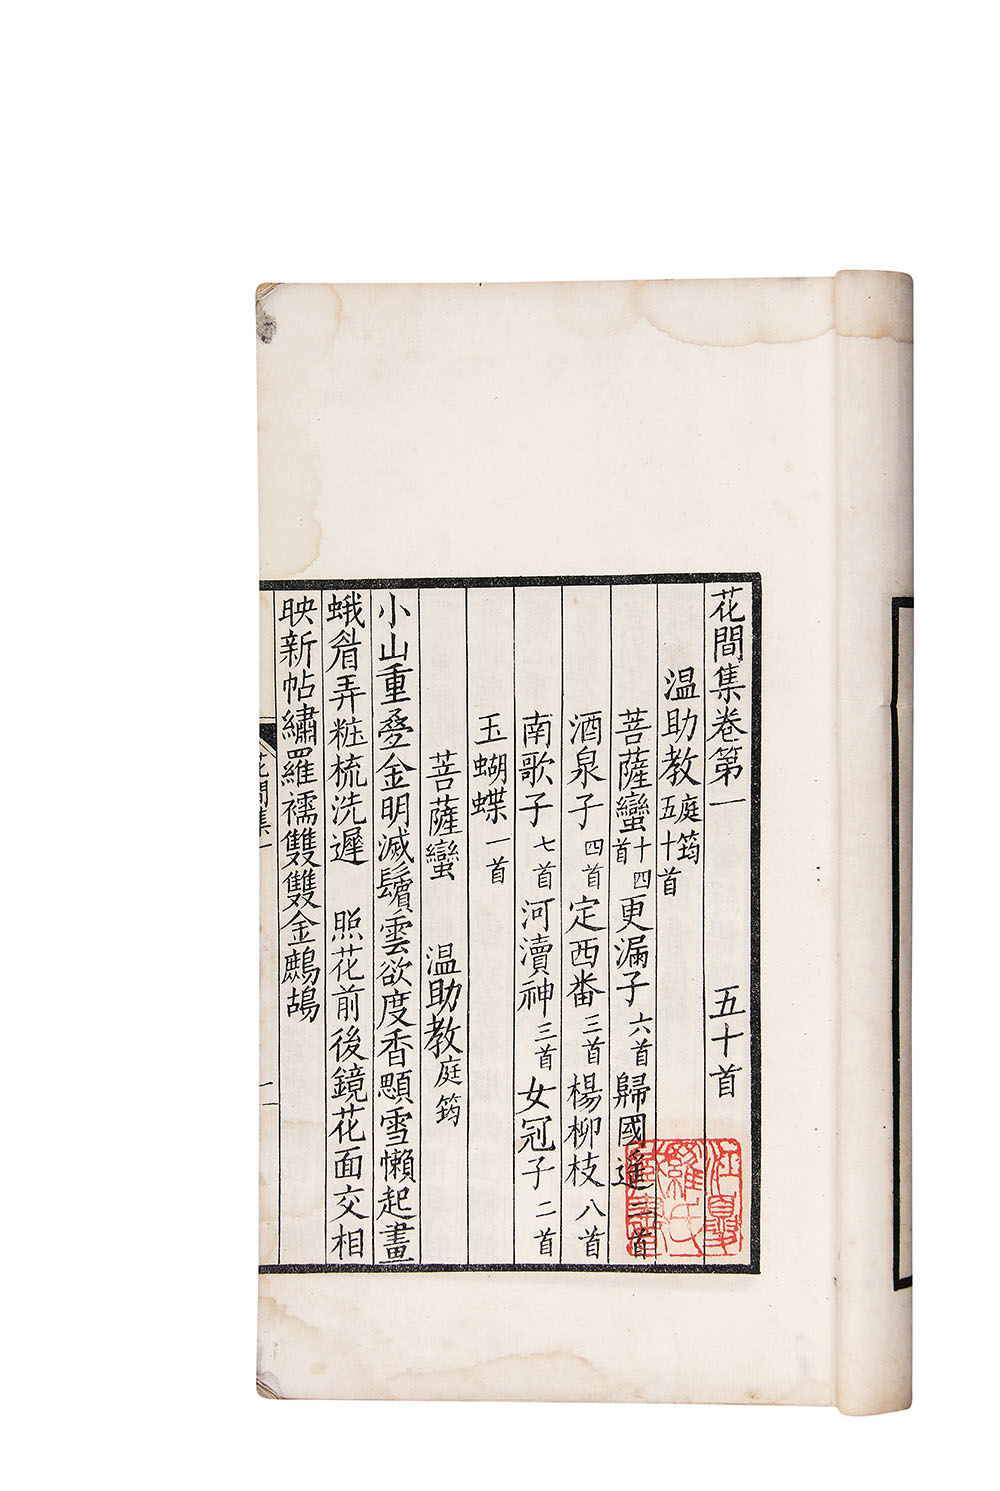 花間集卷第一　五十首
温助教庭筠五十首
菩薩蠻十四首更漏子六首歸國遥三首
酒泉子四首定西番三首楊柳枝八首
南歌子七首河瀆神三首女冠子二首
玉蝴蝶一首
菩薩蠻　温助教庭筠
小山重疊金明滅鬢雲欲度香顋雪懶起畫
蛾眉弄粧梳洗遲　照花前後鏡花面交相
映新帖繡羅襦雙雙金鷓鴣
花間集一
一